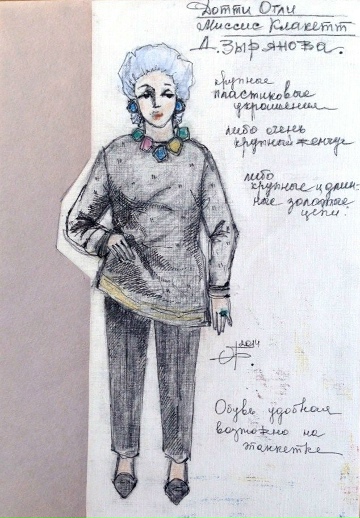 Дотти Отли
Миссис Клакетт
Д. Зырянова.
крупные
пластиковые
украшения
либо очень
крупный жемчуг
либо
крупные и длин-
ные золотые
цепи.
2014
Обувь удобная
возможно на
танкетке